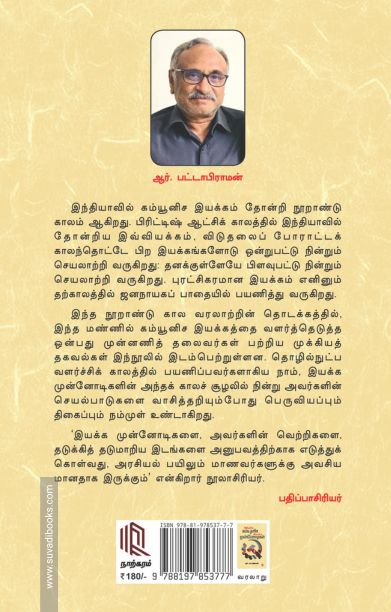 ஆர். பட்டாபிராமன்
இந்தியாவில் கம்யூனிச இயக்கம் தோன்றி நூறாண்டு
காலம் ஆகிறது. பிரிட்டிஷ் ஆட்சிக் காலத்தில் இந்தியாவில்
தோன்றிய இவ்வியக்கம், விடுதலைப் போராட்டக்
காலந்தொட்டே பிற இயக்கங்களோடு ஒன்றுபட்டு நின்றும்
செயலாற்றி வருகிறது; தனக்குள்ளேயே பிளவுபட்டு நின்றும்
செயலாற்றி வருகிறது. புரட்சிகரமான இயக்கம் எனினும்
தற்காலத்தில் ஜனநாயகப் பாதையில் பயணித்து வருகிறது.
இந்த நூறாண்டு கால வரலாற்றின் தொடக்கத்தில்,
இந்த மண்ணில் கம்யூனிச இயக்கத்தை வளர்த்தெடுத்த
ஒன்பது முன்னணித் தலைவர்கள் பற்றிய முக்கியத்
தகவல்கள் இந்நூலில் இடம்பெற்றுள்ளன. தொழில்நுட்ப
வளர்ச்சிக் காலத்தில் பயணிப்பவர்களாகிய நாம், இயக்க
முன்னோடிகளின் அந்தக் காலச் சூழலில் நின்று அவர்களின்
செயல்பாடுகளை வாசித்தறியும்போது பெருவியப்பும்
திகைப்பும் நம்முள் உண்டாகிறது.
‘இயக்க முன்னோடிகளை, அவர்களின் வெற்றிகளை,
தடுக்கித் தடுமாறிய இடங்களை அனுபவத்திற்காக எடுத்துக்
கொள்வது, அரசியல் பயிலும் மாணவர்களுக்கு அவசிய
மானதாக இருக்கும்’ என்கிறார் நூலாசிரியர்.
பதிப்பாசிரியர்
www.suvadibooks.com
நாற்கரம்
₹ 180/-
ISBN 978-81-978537-7-7
9 788197 853777
வரலாறு